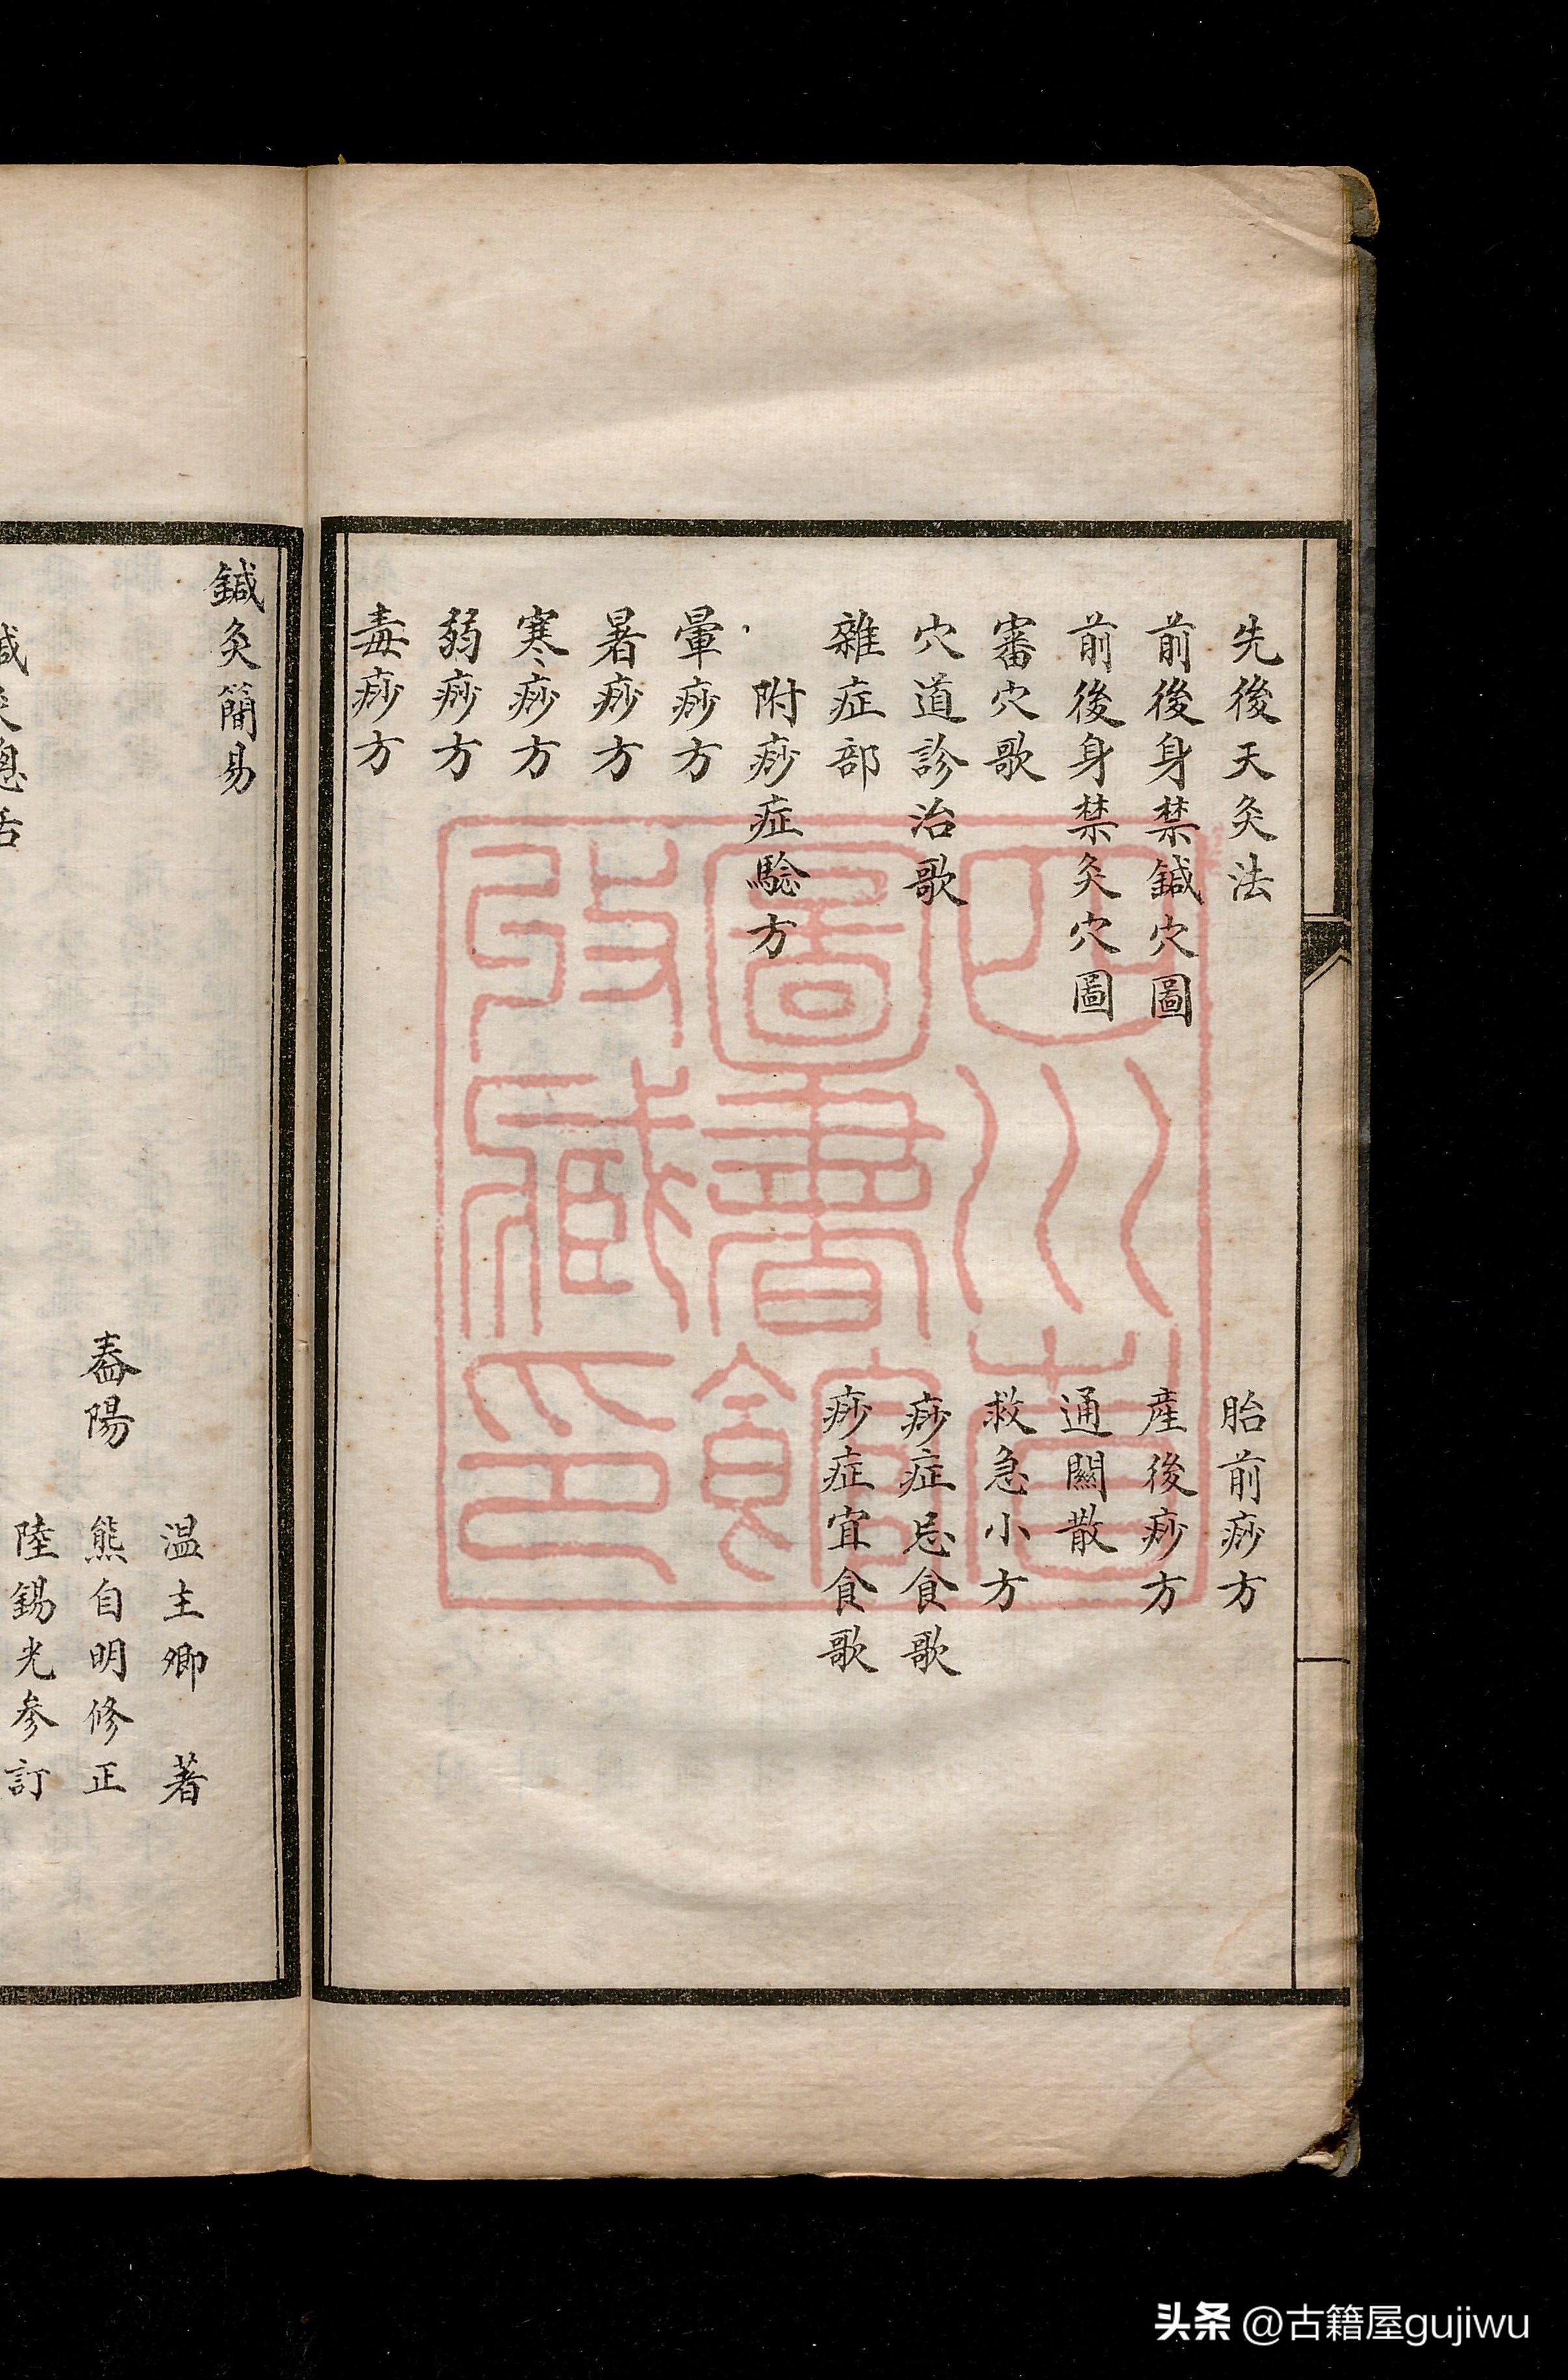 先後天灸法
前後身禁鍼穴圖
前後身禁灸穴圖
審穴歌
穴道診治歌
雜症部
附痧症騐方
暈痧方
暑痧方
寒痧方
弱痧方
毒痧方
胎前痧方
產後痧方
通關散
救急小方
痧症忌食歌
痧症宜食歌
四川省
圖書館
收藏印
鍼灸簡易
温主卿 著
陽 熊自明修正
陸錫光参訂
头条 @古籍屋gujiwu